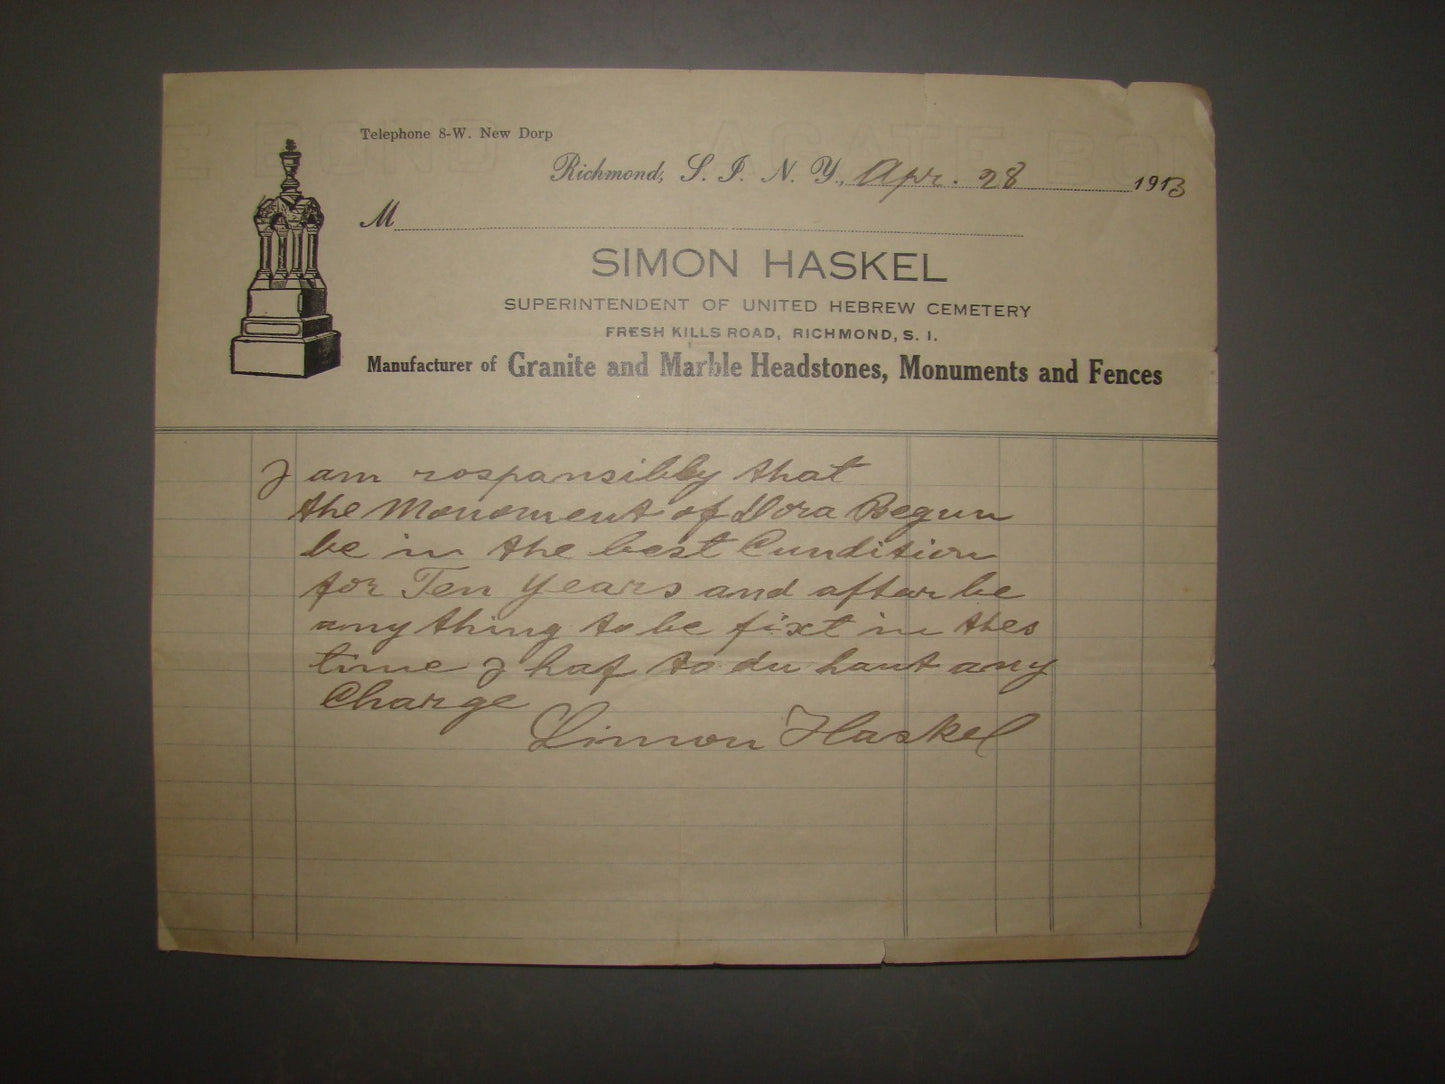 Telephone 8-W. New Dorp
Richmond, S. I. N. Y., Apr. 28 1913
M
SIMON HASKEL
SUPERINTENDENT OF UNITED HEBREW CEMETERY
FRESH KILLS ROAD, RICHMOND, S. I.
Manufacturer of Granite and Marble Headstones, Monuments and Fences
I am rospansibly that
the Monoment of Dora Begun
be in the best Cundition
for Ten years and aftar be
any thing to be fixt in thes
time I haf to du haut any
Charge
Simon Haskel